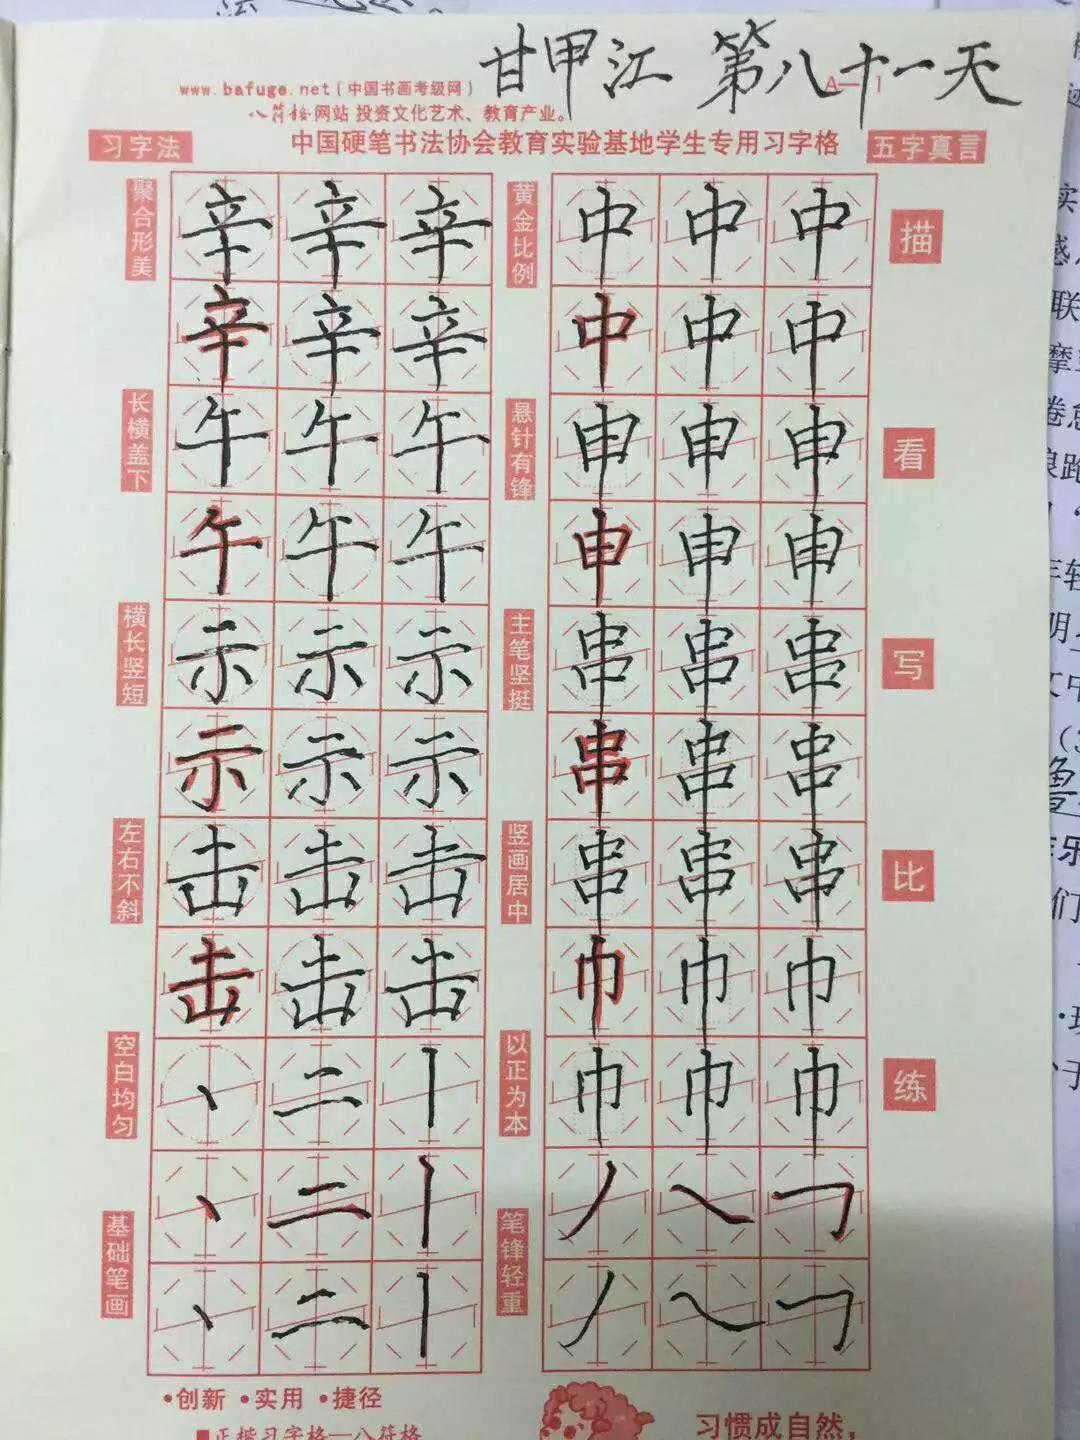 甘甲江 第八十一天
www.bafuge.net(中国书画考级网)
八符格网站 投资文化艺术、教育产业。
习字法 中国硬笔书法协会教育实验基地学生专用习字格 五字真言
聚合形美 辛 辛 辛 黄金比例 中 中 中 描
辛 辛 辛 中 中 中
长横盖下 午 午 午 悬针有锋 申 申 申 看
午 午 午 申 申 申
横长竖短 示 示 示 主笔坚挺 串 串 串 写
示 示 示 串 串 串
左右不斜 击 击 击 竖画居中 串 串 串 比
击 击 击 巾 巾 巾
空白均匀 丶 二 丨 以正为本 巾 巾 巾 练
基础笔画 丶 二 丨 笔锋轻重 丿 ㇏ ㇆
丶 二 丨 丿 ㇏ ㇆
•创新 •实用 •捷径
■正楷习字格—八符格
习惯成自然,